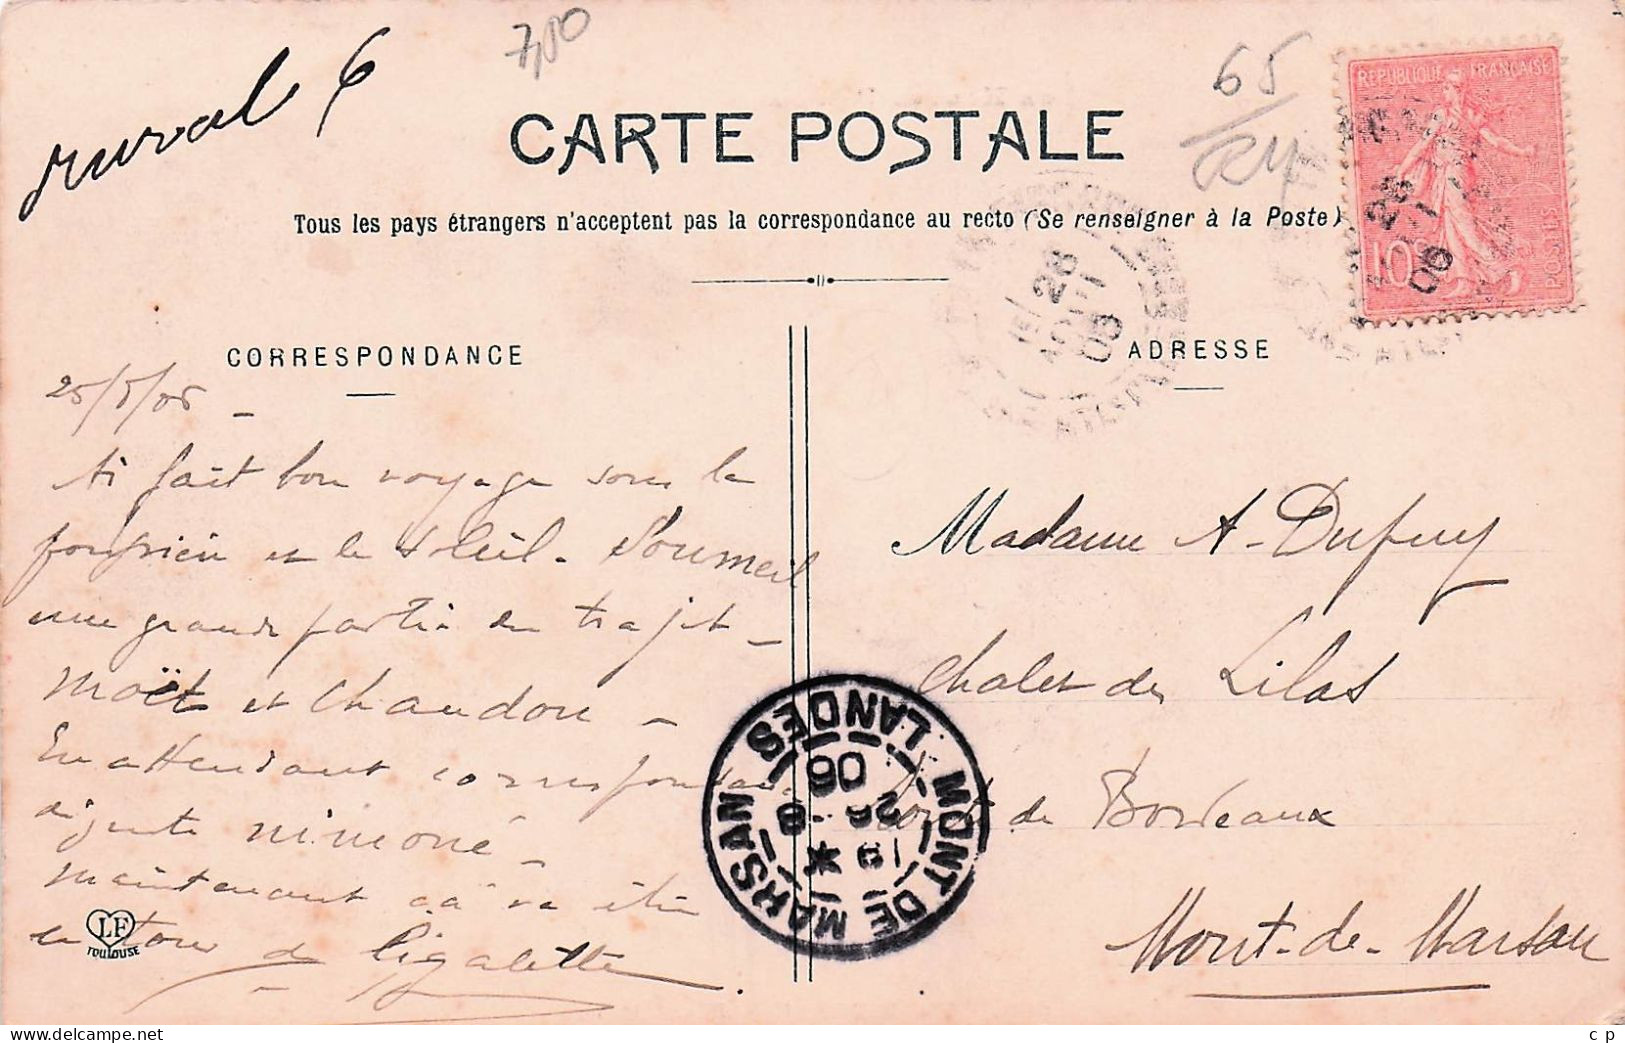 rural 6
7,00
65
CARTE POSTALE
Tous les pays étrangers n'acceptent pas la correspondance au recto (Se renseigner à la Poste)
REPUBLIQUE FRANÇAISE
10
POSTES
26
06
26
CORRESPONDANCE
25/8/06 -
Ai fait bon voyage sous la
et le soleil. Sommeil
une grande partie du trajet -
Moët et Chandon -
En attendant
nimoné -
maintenant çà va être
le tour de Rigaletti
LF
TOULOUSE
ADRESSE
Madame A. Dufuy
Chalet des Lilas
Route de Bordeaux
Mont-de-Marsan
MONT DE MARSAN
LANDES
06
c p